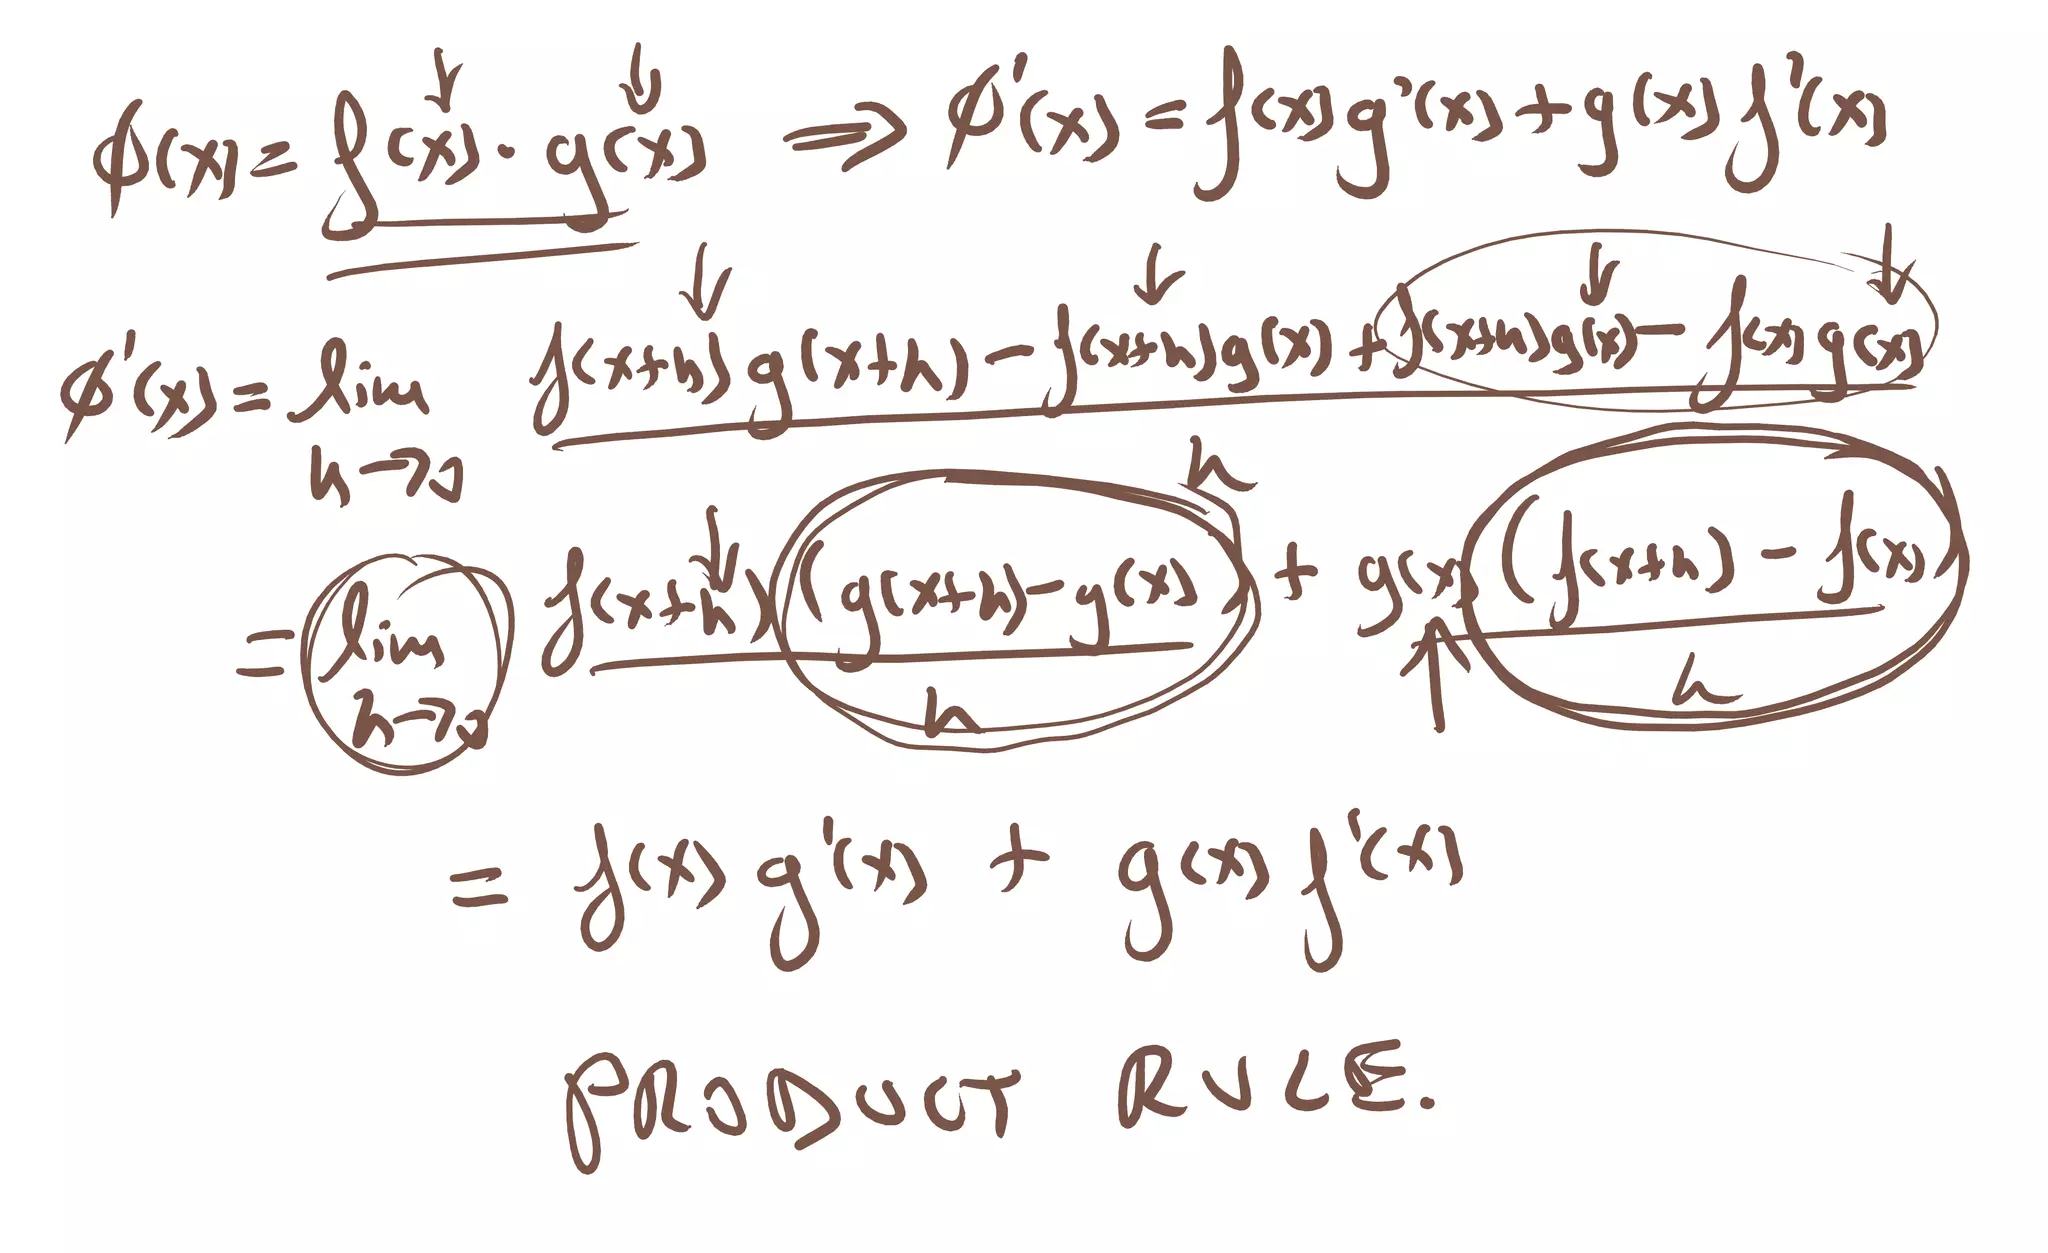 ϕ(x) = f(x) · g(x) ⇒ ϕ'(x) = f(x) g'(x) + g(x) f'(x)
ϕ'(x) = lim h→0 f(x+h) g(x+h) − f(x+h) g(x) + f(x+h) g(x) − f(x) g(x) / h
= lim h→0 f(x+h) (g(x+h) − g(x)) / h + g(x) (f(x+h) − f(x)) / h
= f(x) g'(x) + g(x) f'(x)
PRODUCT RULE.